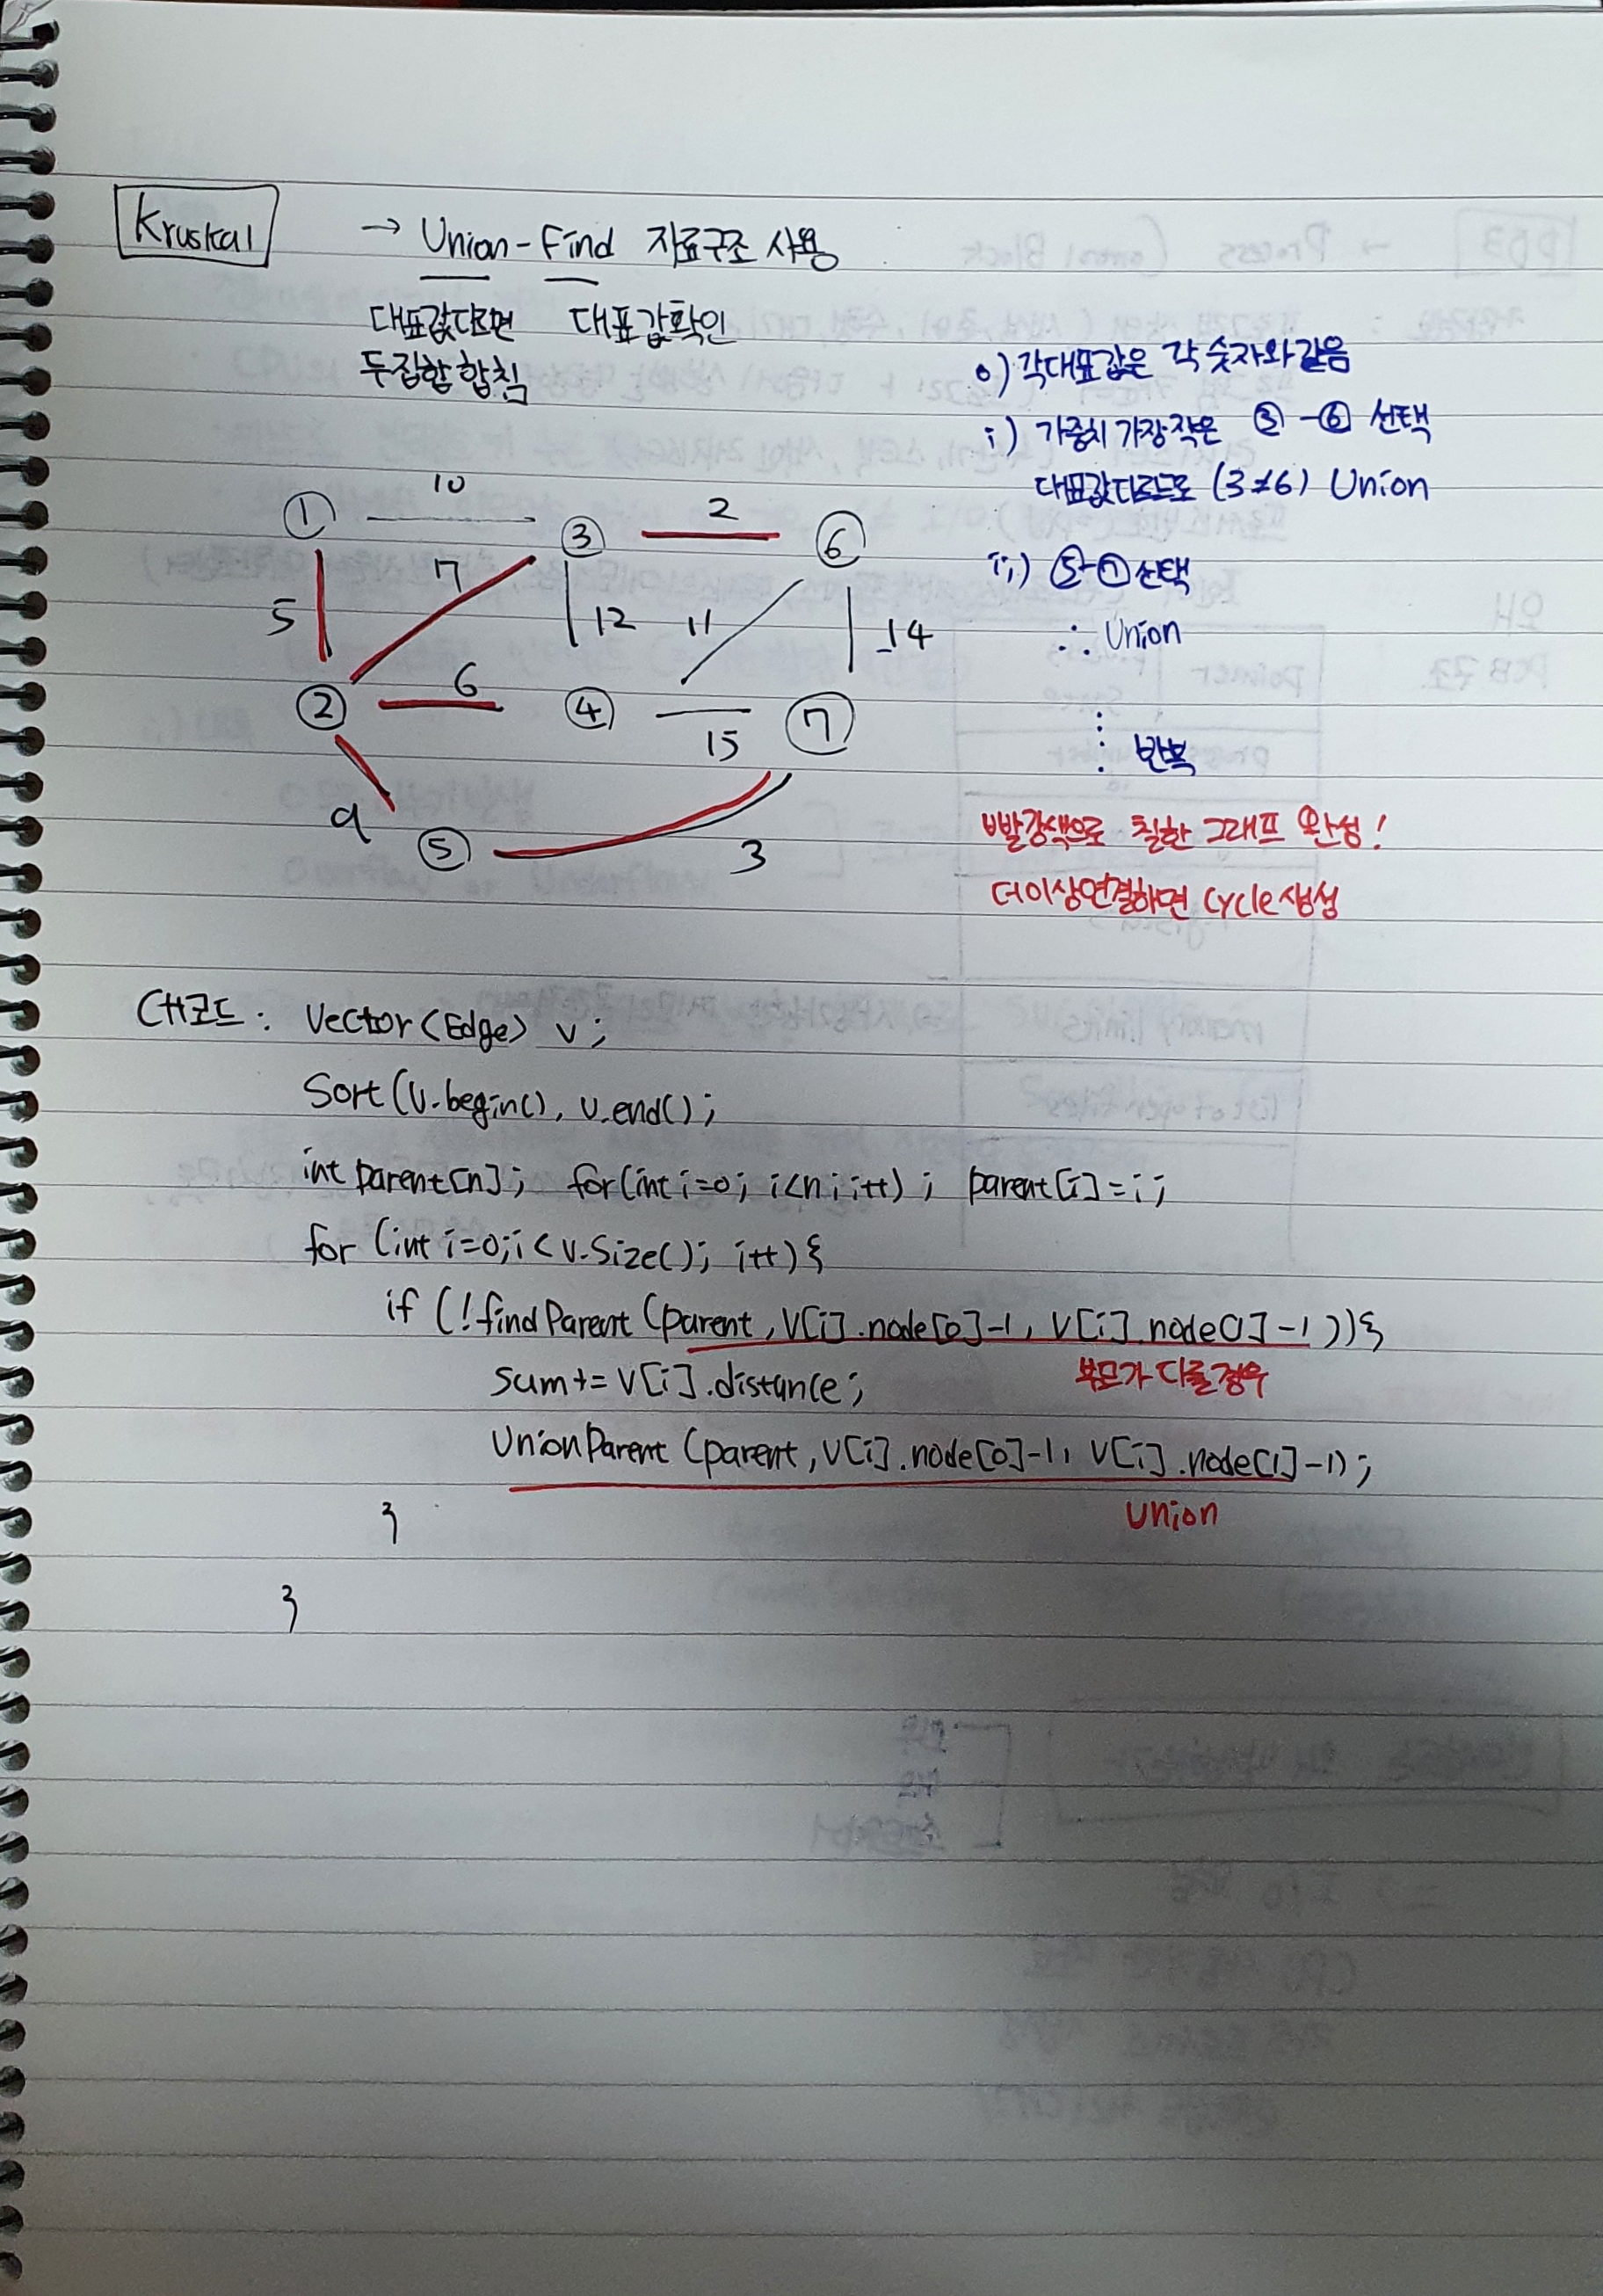 Kruskal → Union-Find 자료구조 사용
대표값다르면 대표값확인
두집합 합침
0) 각대표값은 각 숫자와같음
i) 가중치 가장작은 ③-⑥ 선택
대표값다르므로 (3≠6) Union
ii) ⑤-⑦선택
∴ Union
⋮ 반복
빨강색으로 칠한 그래프 완성!
더이상연결하면 cycle생성
① 10 ③ 2 ⑥
5 7 12 11 14
② 6 ④ 15 ⑦
9 ⑤ 3
C++코드: Vector<Edge> v;
Sort(v.begin(), v.end();
int parent[n]; for(int i=0; i<n; i++); parent[i]=i;
for (int i=0; i<v.size(); i++){
if (!findParent(parent, v[i].node[0]-1, v[i].node[1]-1)){
부모가 다를경우
sum+= v[i].distance;
UnionParent(parent, v[i].node[0]-1, v[i].node[1]-1);
Union
}
}